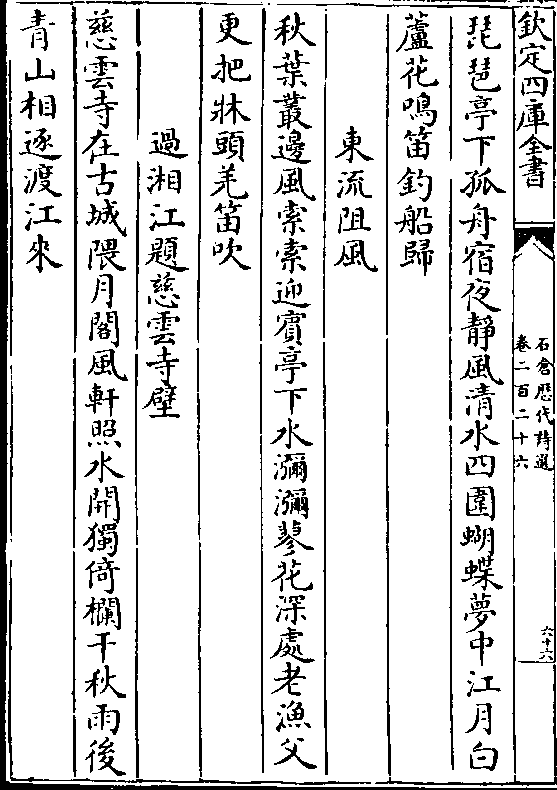 欽定四庫全書
石倉歷代詩選
卷二百二十六
六十六
琵琶亭下孤舟宿夜靜風清水四圍蝴蝶夢中江月白
蘆花鳴笛釣船歸
東流阻風
秋葉叢邊風索索迎賓亭下水瀰瀰蓼花深處老漁父
更把牀頭羌笛吹
過湘江題慈雲寺壁
慈雲寺在古城隈月閣風軒照水開獨倚欄干秋雨後
青山相逐渡江來